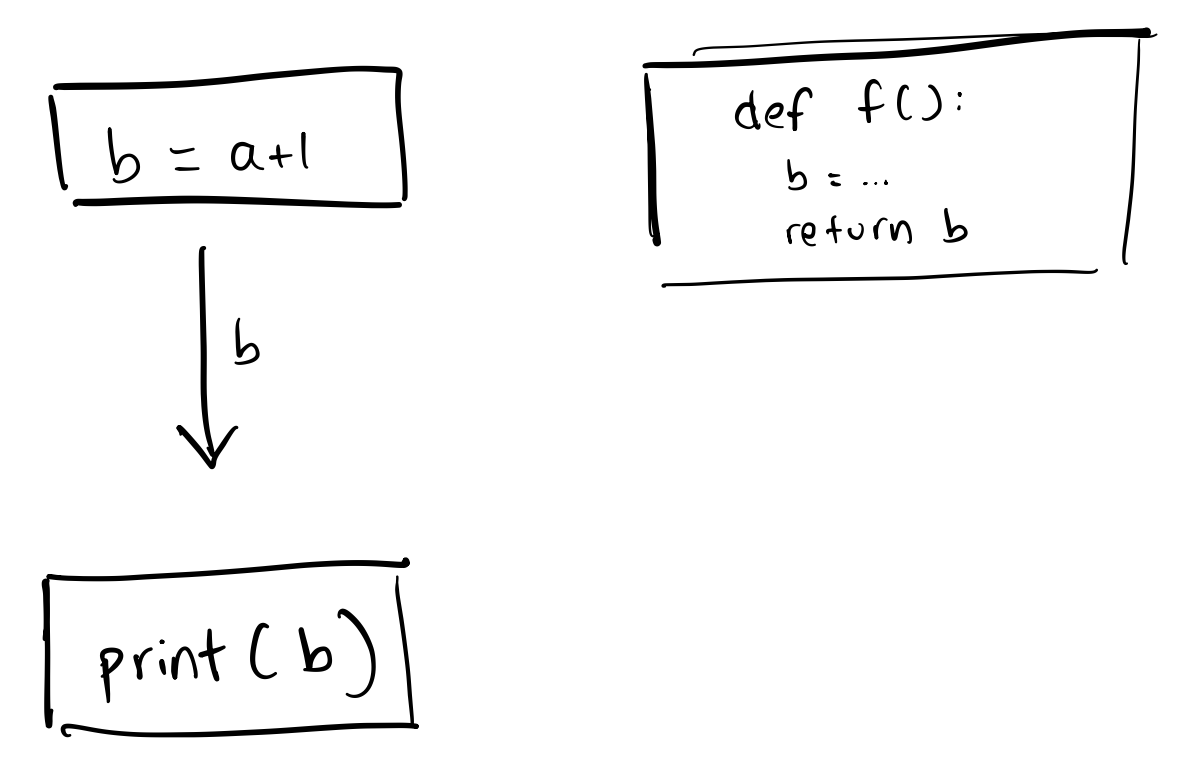 b = a+1
b
print(b)
def f():
b = ...
return b